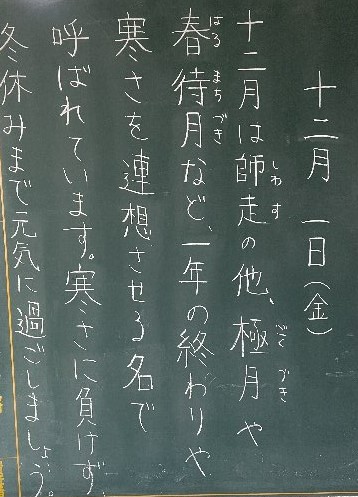 十二月 一日（金）
十二月は師走の他、極月や
しわす
ごくづき
春待月など、一年の終わりや
はるまちづき
寒さを連想させる名で
呼ばれています。寒さに負けず、
冬休みまで元気に過ごしましょう。